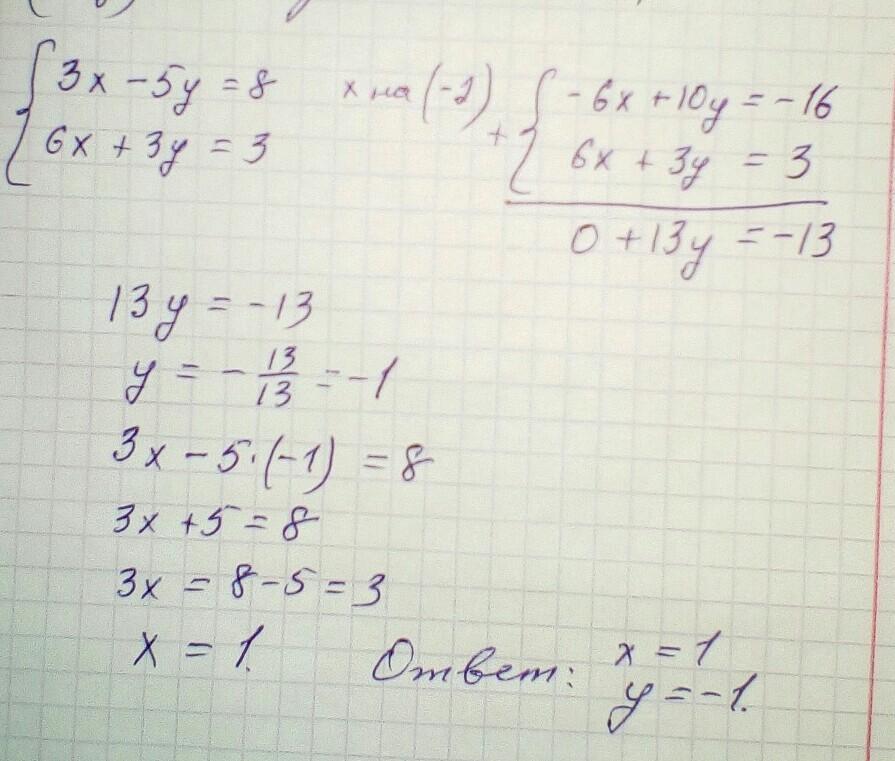 3x - 5y = 8
6x + 3y = 3
x на (-2)
-6x + 10y = -16
+
6x + 3y = 3
0 + 13y = -13
13y = -13
y = - 13/13 = -1
3x - 5·(-1) = 8
3x + 5 = 8
3x = 8 - 5 = 3
x = 1.
Ответ: x = 1
y = -1.